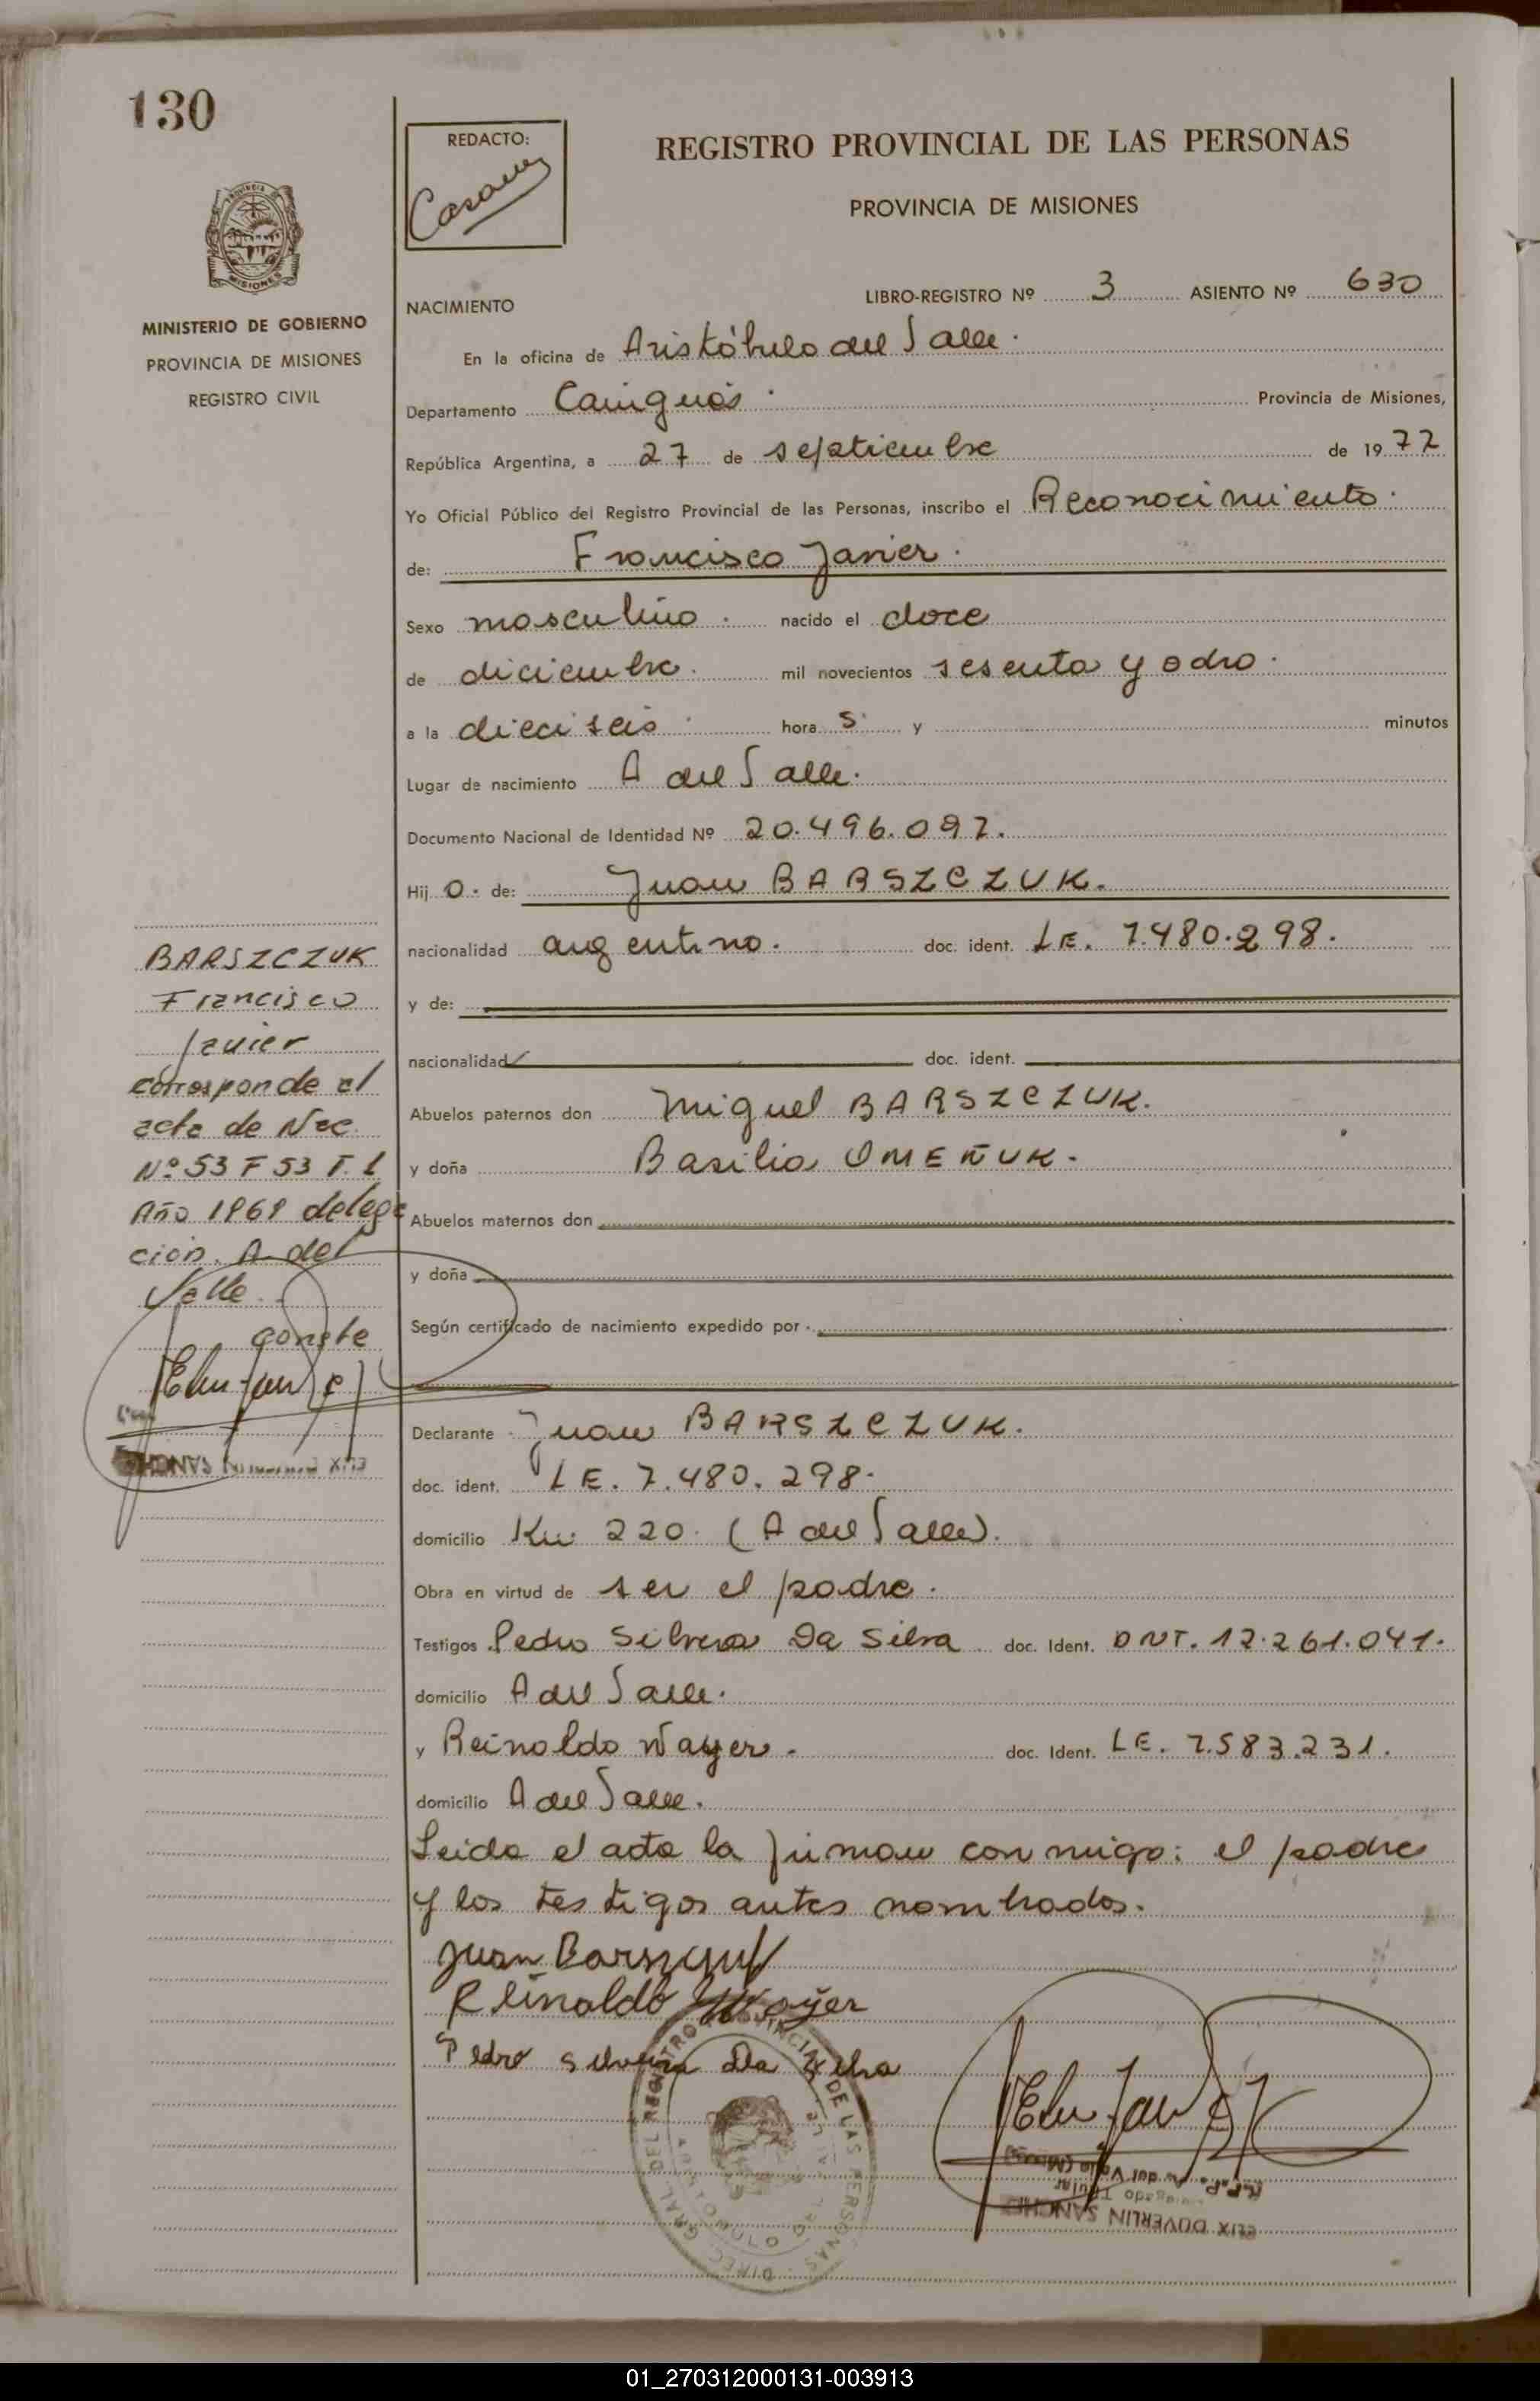 130
REDACTO:
REGISTRO PROVINCIAL DE LAS PERSONAS
PROVINCIA DE MISIONES
MISIONES
MINISTERIO DE GOBIERNO
PROVINCIA DE MISIONES
REGISTRO CIVIL
LIBRO-REGISTRO Nº 3 ASIENTO Nº 630
NACIMIENTO
En la oficina de Aristóbulo del Valle.
Departamento Cainguás. Provincia de Misiones,
República Argentina, a 27 de septiembre de 1977
Yo Oficial Público del Registro Provincial de las Personas, inscribo el Reconocimiento.
de: Francisco Javier.
Sexo masculino. nacido el doce
de diciembre. mil novecientos sesenta y ocho.
a la dieciseis hora s y minutos
Lugar de nacimiento A del Valle.
Documento Nacional de Identidad Nº 20.496.097.
Hij o. de: Juan BARSZCZUK.
nacionalidad argentino. doc. ident. LE. 7.480.298.
y de:
nacionalidad doc. ident.
Abuelos paternos don Miguel BARSZCZUK.
y doña Basilia OMEÑUK.
Abuelos maternos don
y doña
Según certificado de nacimiento expedido por
BARSZCZUK
Francisco
Javier
corresponde al
acta de Nac.
Nº 53 F 53 T. 1
Año 1969 delega
ción. A del
Valle.
conste
Declarante Juan BARSZCZUK.
doc. ident. LE. 7.480.298.
domicilio Km 220. (A del Valle).
Obra en virtud de ser el padre.
Testigos Pedro Silvera Da Silva doc. Ident. DNI. 12.261.041.
domicilio A del Valle.
y Reinaldo Wayer. doc. Ident. LE. 7.583.231.
domicilio A del Valle.
Leida el acta la firman conmigo: el padre
y los testigos antes nombrados.
Juan Barszczuk
Reinaldo Wayer
Pedro Silveira Da Silva
DIREC. GRAL. DEL REGISTRO PROVINCIAL DE LAS PERSONAS
ELIX DUVERLIN SANCHEZ
01_270312000131-003913